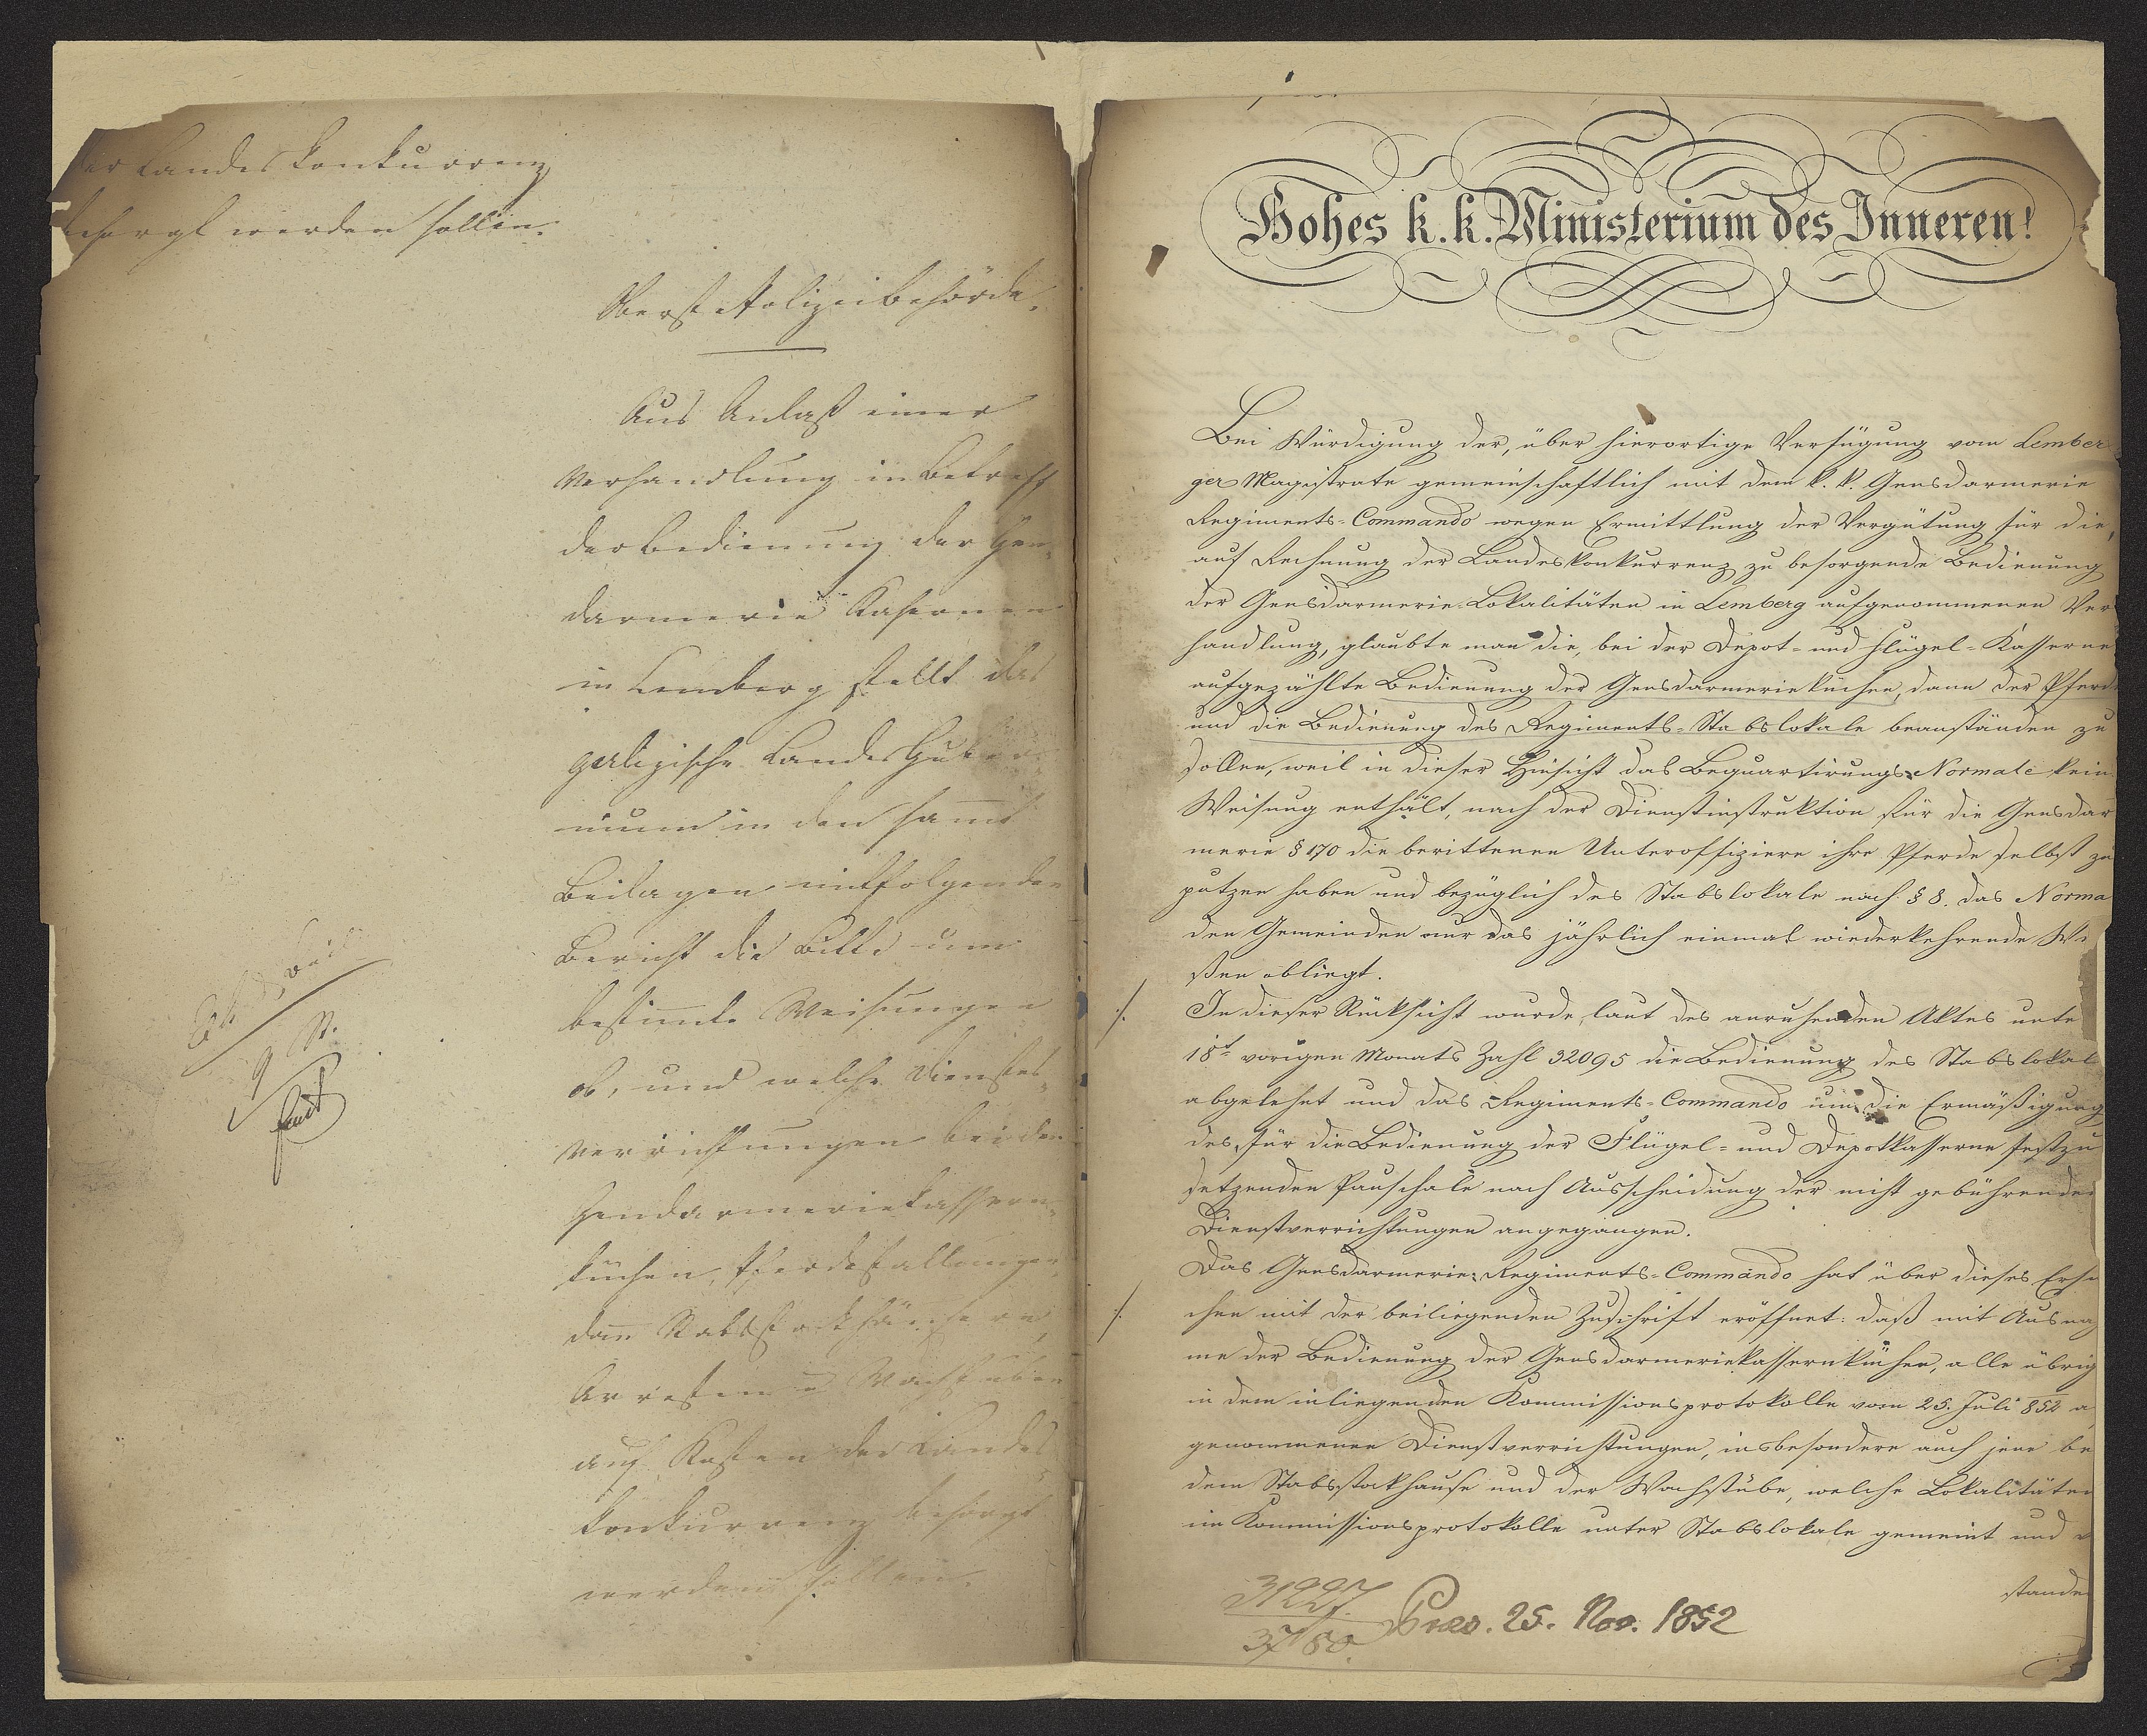 der Landeskonkurrenz
besorgt werden sollen.
Oberste Polizeibehörde.
Aus Anlaß einer
Verhandlung in Betreff
der Bedienung der Gen¬
darmerie Kasernen
in Lemberg stellt das
galizische Landes Guber¬
nium in den samt
Beilagen mitfolgenden
Bericht die Bitte um
bestimmte Weisungen
ob, und welche Dienstes¬
verrichtungen bei den
Gendarmeriekassern¬
küchen, Pferdestallungen,
dann Stabsstockhäusern,
Arresten u Wachstuben
auf Kosten der Landes¬
konkurrenz besorgt
werden sollen.
Hohes k. k. Ministerium des Inneren!
Bei Würdigung der, über hierortige Verfügung vom Lember
ger Magistrate gemeinschaftlich mit dem k. k. Gensdarmerie
Regiments-Commando wegen Ermittlung der Vergütung für die,
auf Rechnung der Landeskonkurrenz zu besorgende Bedienung
der Gensdarmerie-Lokalitäten in Lemberg aufgenommenen Ver
handlung, glaubte man die, bei der Depot- und Flügel-Kasserne
aufgezählte Bedienung der Gensdarmerieküchen, dann der Pferde
und die Bedienung des Regiments-Stabslokale beanständen zu
sollen, weil in dieser Hinsicht das Bequartirungs-Normale kein
Weisung enthält, nach der Dienstinstruktion für die Gensdar
merie § 170 die berittenen Unteroffiziere ihre Pferde selbst zu
putzen haben und bezüglich des Stabslokale nach § 8. das Norma
den Gemeinden nur das jährlich einmal wiederkehrende Wei
ßen obliegt.
./. In dieser Rücksicht wurde, laut des anruhenden Aktes unte
18t vorigen Monats Zahl 32095 die Bedienung des Stabslokal
abgelehnt und das Regiments-Commando um die Ermäßigung
des, für die Bedienung der Flügel- und Depotkasserne festzu
setzenden Pauschale nach Ausscheidung der nicht gebührenden
Dienstverrichtungen angegangen.
Das Gensdarmerie-Regiments-Commando hat über dieses Ersu
./. chen mit der beiliegenden Zuschrift eröffnet: daß mit Ausnah
me der Bedienung der Gensdarmeriekassernküchen, alle übrig
in dem inliegenden Kommissionsprotokolle vom 25. Juli 852 a
genommenen Dienstverrichtungen, insbesondere auch jene be
dem Stabsstockhause und der Wachstube, welche Lokalitäten
im Kommissionsprotokolle unter Stabslokale gemeint und v
stande
Praes. 25. Nov. 1852